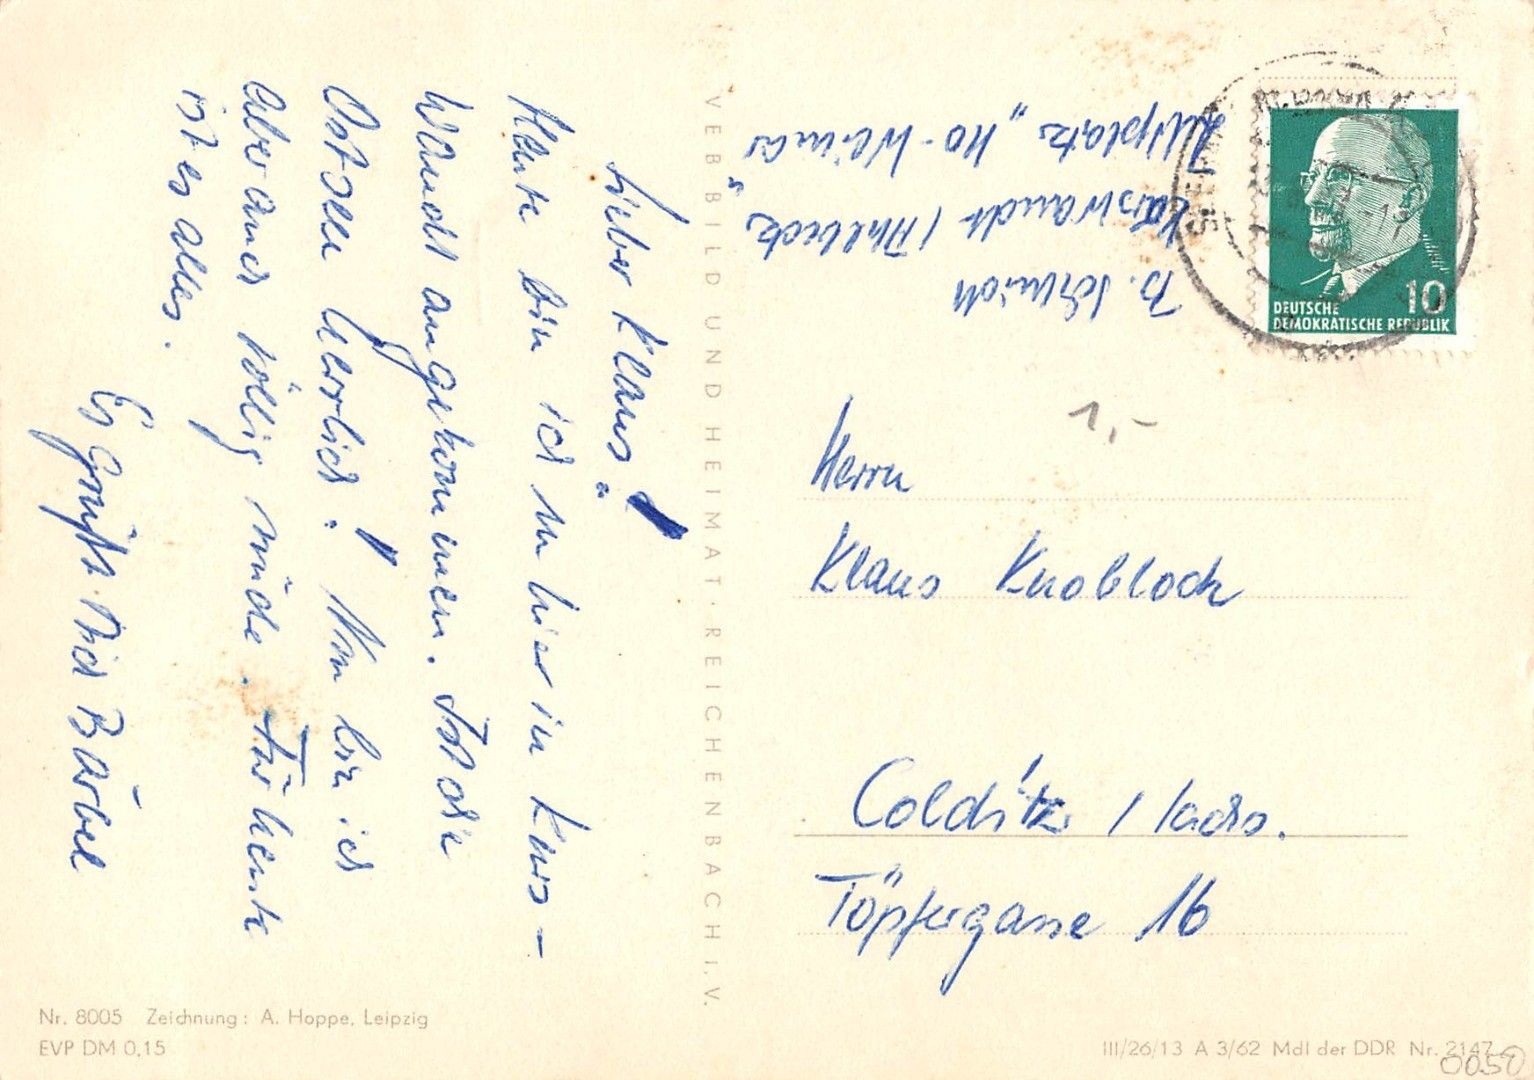 Lieber Klaus!
Heute bin ich nu hier in Kors-
wandt angekommen. Ist die
Ostsee herrlich! Nun bin ich
aber auch völlig müde. Für heute
ist es alles.
Es grüßt Dich Bärbel
B. Schmidt
Korswandt / Ahlbeck
Zeltplatz „HO-Weimar"
VEB BILD UND HEIMAT · REICHENBACH I. V.
DEUTSCHE
DEMOKRATISCHE REPUBLIK
10
1,-
Herrn
Klaus Knobloch
Colditz / Sachs.
Töpfergasse 16
Nr. 8005 Zeichnung: A. Hoppe, Leipzig
EVP DM 0,15
III/26/13 A 3/62 MdI der DDR Nr. 2147
0050